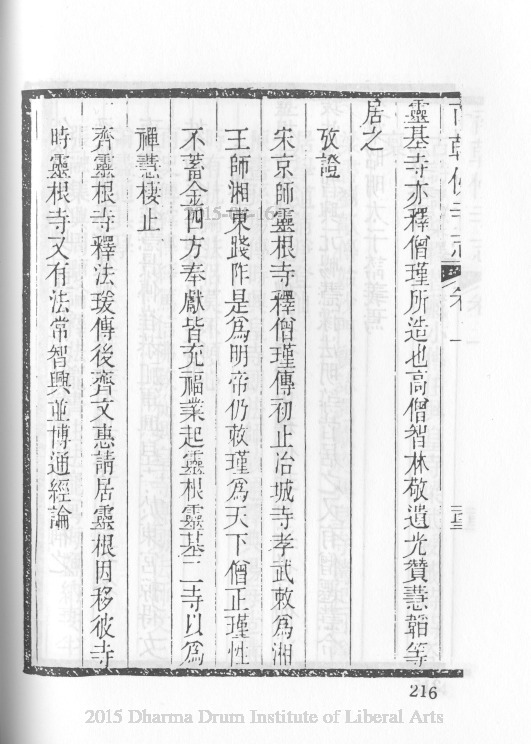 南朝佛寺志 卷一
靈基寺亦釋僧瑾所造也高僧智林敬遺光贊慧韜等
居之
攷證
宋京師靈根寺釋僧瑾傳初止冶城寺孝武敕爲湘
王師湘東踐阼是爲明帝仍敕瑾爲天下僧正瑾性
不蓄金四方奉獻皆充福業起靈根靈基二寺以爲
禪慧棲止
齊靈根寺釋法瑗傳後齊文惠請居靈根因移彼寺
時靈根寺又有法常智興並博通經論
216
2015 Dharma Drum Institute of Liberal Arts